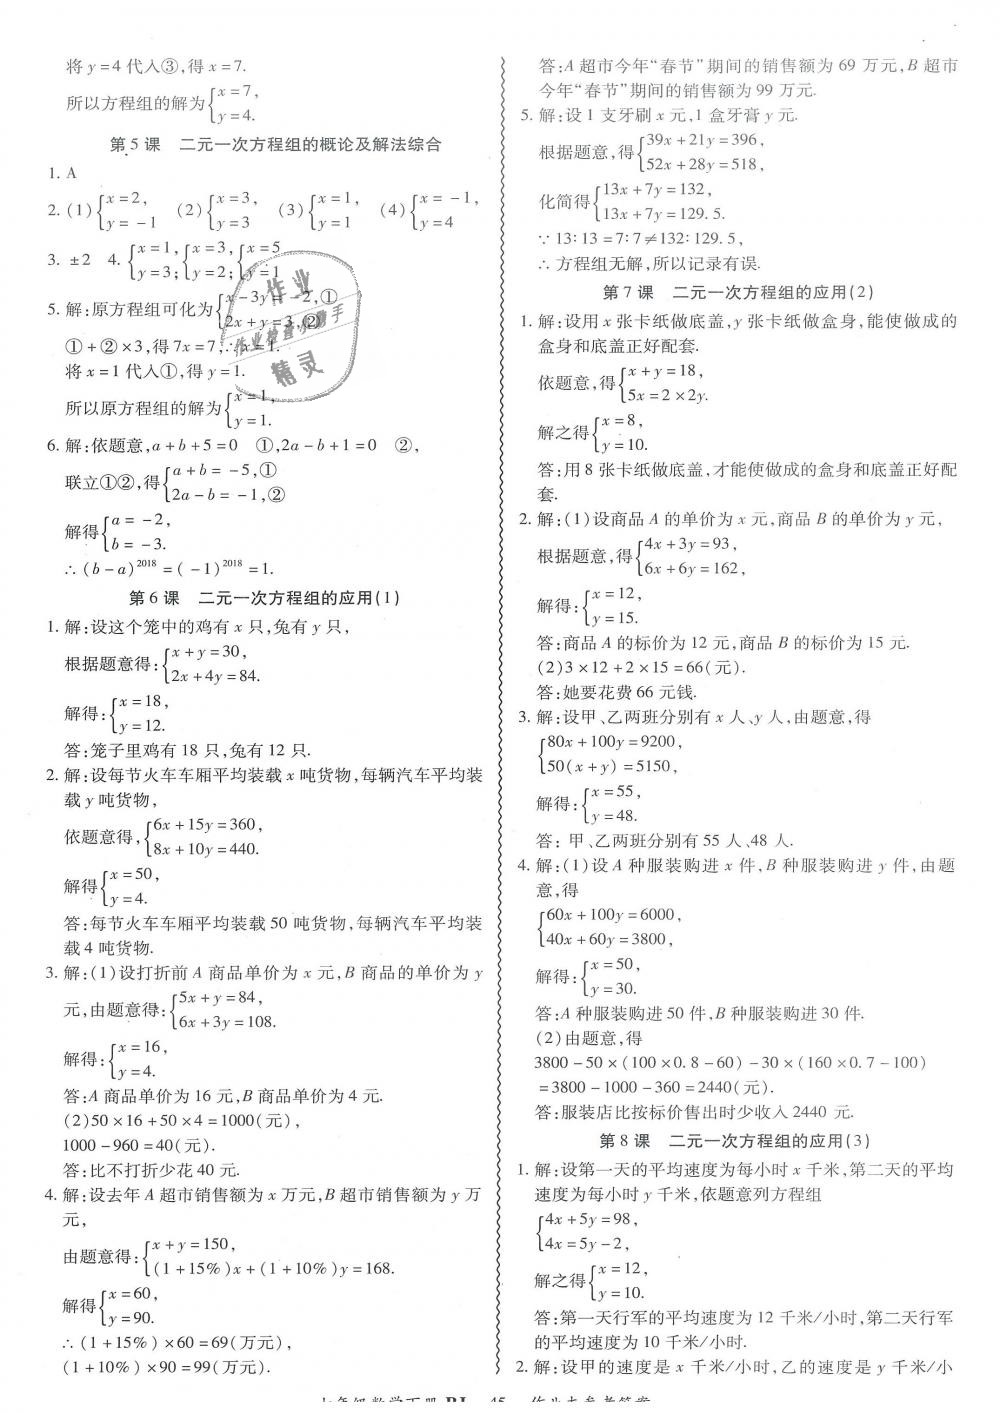 将 y=4 代入③,得 x=7.
所以方程组的解为{x=7,
y=4.
第 5 课 二元一次方程组的概论及解法综合
1. A
2. (1){x=2, (2){x=3, (3){x=1, (4){x=-1,
y=-1 y=3 y=1 y=4
3. ±2 4. {x=1, {x=3, {x=5
y=3; y=2; y=1
5. 解:原方程组可化为{x-3y=-2,①
2x+y=3,②
①+②×3,得 7x=7,∴x=1.
将 x=1 代入①,得 y=1.
所以原方程组的解为{x=1,
y=1.
6. 解:依题意,a+b+5=0 ①,2a-b+1=0 ②,
联立①②,得{a+b=-5,①
2a-b=-1,②
解得{a=-2,
b=-3.
∴(b-a)²⁰¹⁸=(-1)²⁰¹⁸=1.
第 6 课 二元一次方程组的应用(1)
1. 解:设这个笼中的鸡有 x 只,兔有 y 只,
根据题意得:{x+y=30,
2x+4y=84.
解得:{x=18,
y=12.
答:笼子里鸡有 18 只,兔有 12 只.
2. 解:设每节火车车厢平均装载 x 吨货物,每辆汽车平均装
载 y 吨货物,
依题意得,{6x+15y=360,
8x+10y=440.
解得{x=50,
y=4.
答:每节火车车厢平均装载 50 吨货物,每辆汽车平均装
载 4 吨货物.
3. 解:(1)设打折前 A 商品单价为 x 元,B 商品的单价为 y
元,由题意得:{5x+y=84,
6x+3y=108.
解得:{x=16,
y=4.
答:A 商品单价为 16 元,B 商品单价为 4 元.
(2)50×16+50×4=1000(元),
1000-960=40(元).
答:比不打折少花 40 元.
4. 解:设去年 A 超市销售额为 x 万元,B 超市销售额为 y 万
元,
由题意得:{x+y=150,
(1+15%)x+(1+10%)y=168.
解得{x=60,
y=90.
∴(1+15%)×60=69(万元),
(1+10%)×90=99(万元).
答:A 超市今年“春节”期间的销售额为 69 万元,B 超市
今年“春节”期间的销售额为 99 万元.
5. 解:设 1 支牙刷 x 元,1 盒牙膏 y 元.
根据题意,得{39x+21y=396,
52x+28y=518,
化简得{13x+7y=132,
13x+7y=129.5.
∵13∶13=7∶7≠132∶129.5,
∴方程组无解,所以记录有误.
第 7 课 二元一次方程组的应用(2)
1. 解:设用 x 张卡纸做底盖,y 张卡纸做盒身,能使做成的
盒身和底盖正好配套.
依题意,得{x+y=18,
5x=2×2y.
解之得{x=8,
y=10.
答:用 8 张卡纸做底盖,才能使做成的盒身和底盖正好配
套.
2. 解:(1)设商品 A 的单价为 x 元,商品 B 的单价为 y 元,
根据题意,得{4x+3y=93,
6x+6y=162,
解得:{x=12,
y=15.
答:商品 A 的标价为 12 元,商品 B 的标价为 15 元.
(2)3×12+2×15=66(元).
答:她要花费 66 元钱.
3. 解:设甲、乙两班分别有 x 人、y 人,由题意,得
{80x+100y=9200,
50(x+y)=5150,
解得:{x=55,
y=48.
答: 甲、乙两班分别有 55 人、48 人.
4. 解:(1)设 A 种服装购进 x 件,B 种服装购进 y 件,由题
意,得
{60x+100y=6000,
40x+60y=3800,
解得:{x=50,
y=30.
答:A 种服装购进 50 件,B 种服装购进 30 件.
(2)由题意,得
3800-50×(100×0.8-60)-30×(160×0.7-100)
=3800-1000-360=2440(元).
答:服装店比按标价售出时少收入 2440 元.
第 8 课 二元一次方程组的应用(3)
1. 解:设第一天的平均速度为每小时 x 千米,第二天的平均
速度为每小时 y 千米,依题意列方程组
{4x+5y=98,
4x=5y-2,
解之得{x=12,
y=10.
答:第一天行军的平均速度为 12 千米/小时,第二天行军
的平均速度为 10 千米/小时.
2. 解:设甲的速度是 x 千米/小时,乙的速度是 y 千米/小
作业
作业检查小助手
精灵